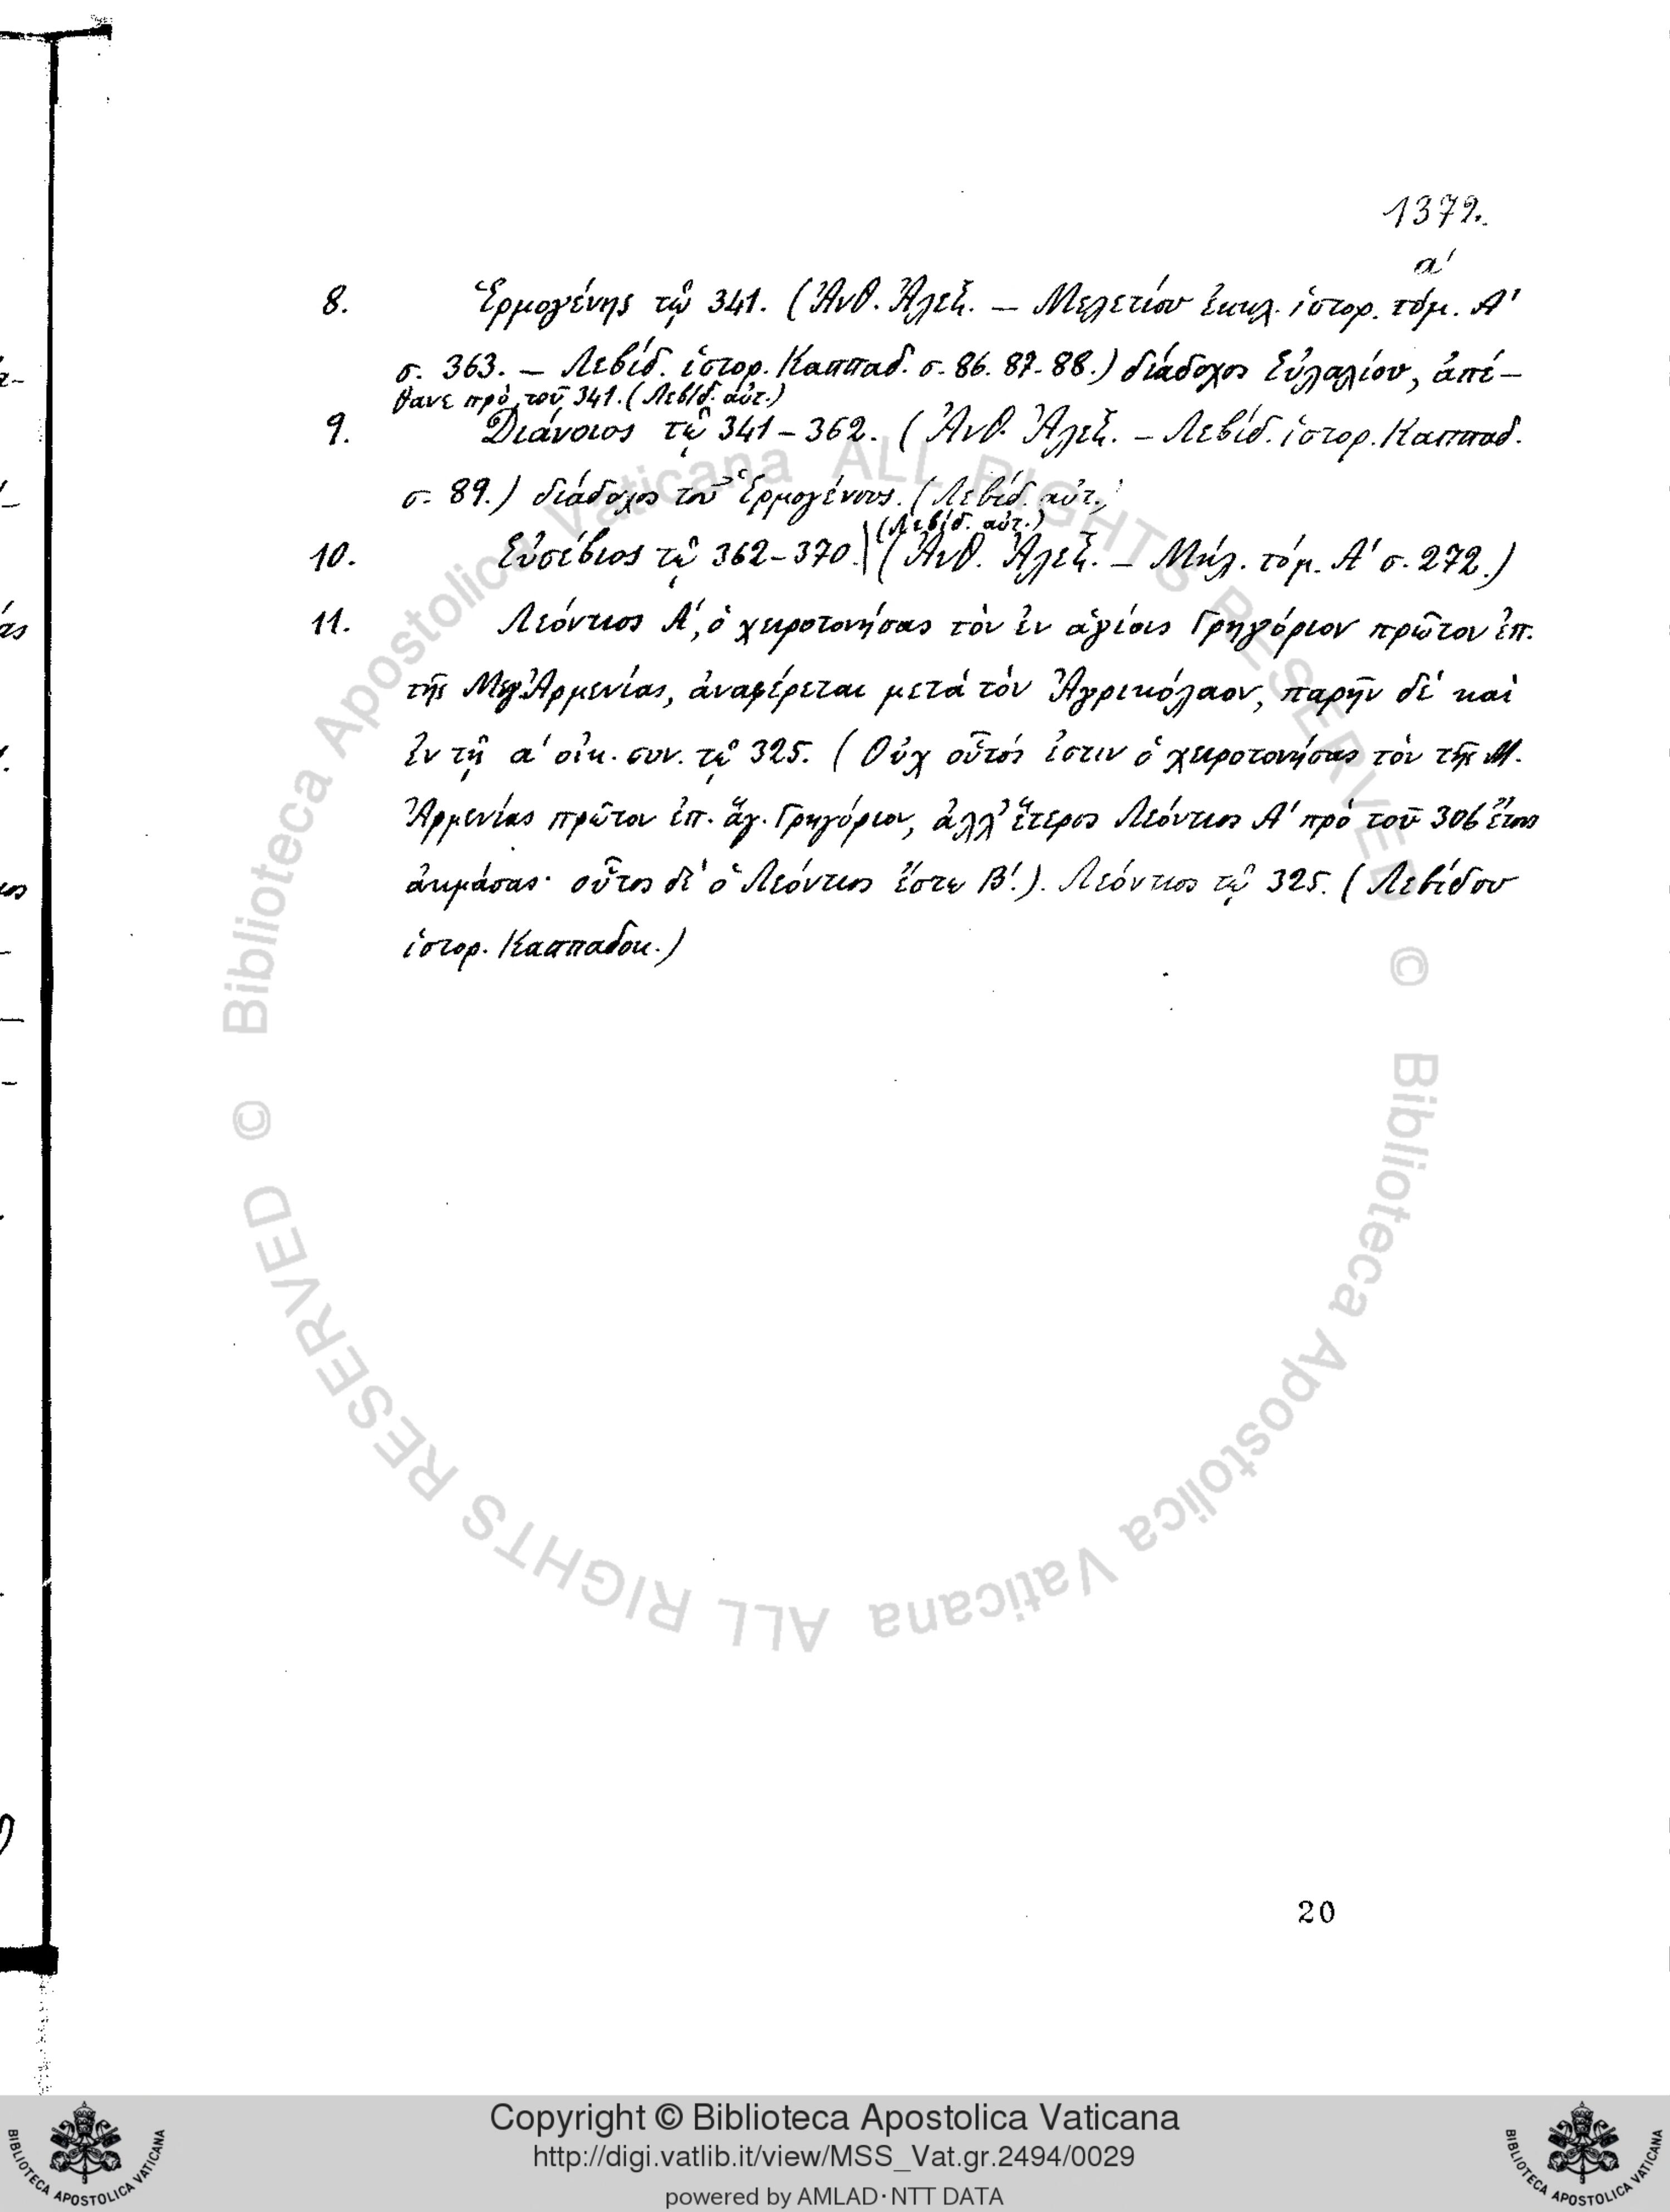 1379.
α'
8. Ἑρμογένης τῷ 341. (Ἀνθ. Ἀλεξ. — Μελετίου ἐκκλ. ἱστορ. τόμ. Α'
σ. 363. — Λεβίδ. ἱστορ. Καππαδ. σ. 86. 87. 88.) διάδοχος Εὐλαλίου, ἀπέ-
θανε πρὸ τοῦ 341. (Λεβίδ. αὐτ.)
9. Διάνοιος τῷ 341–362. (Ἀνθ. Ἀλεξ. — Λεβίδ. ἱστορ. Καππαδ.
σ. 89.) διάδοχος τοῦ Ἑρμογένους. (Λεβίδ. αὐτ.)
(Λεβίδ. αὐτ.)
10. Εὐσέβιος τῷ 362–370. (Ἀνθ. Ἀλεξ. — Μήλ. τόμ. Α' σ. 272.)
11. Λεόντιος Α', ὁ χειροτονήσας τὸν ἐν ἁγίοις Γρηγόριον πρῶτον ἐπ.
τῆς Μεγ. Ἀρμενίας, ἀναφέρεται μετὰ τὸν Ἀγρικόλαον, παρῆν δὲ καὶ
ἐν τῇ α' οἰκ. συν. τῷ 325. (Οὐχ οὗτός ἐστιν ὁ χειροτονήσας τὸν τῆς Μ.
Ἀρμενίας πρῶτον ἐπ. ἅγ. Γρηγόριον, ἀλλ' ἕτερος Λεόντιος Α' πρὸ τοῦ 306 ἔτους
ἀκμάσας· οὗτος δὲ ὁ Λεόντιος ἔστω Β'.). Λεόντιος τῷ 325. (Λεβίδου
ἱστορ. Καππαδοκ.)
20
© Biblioteca Apostolica Vaticana ALL RIGHTS RESERVED
© Biblioteca Apostolica Vaticana ALL RIGHTS RESERVED
Copyright © Biblioteca Apostolica Vaticana
http://digi.vatlib.it/view/MSS_Vat.gr.2494/0029
powered by AMLAD·NTT DATA
BIBLIOTECA APOSTOLICA VATICANA
BIBLIOTECA APOSTOLICA VATICANA